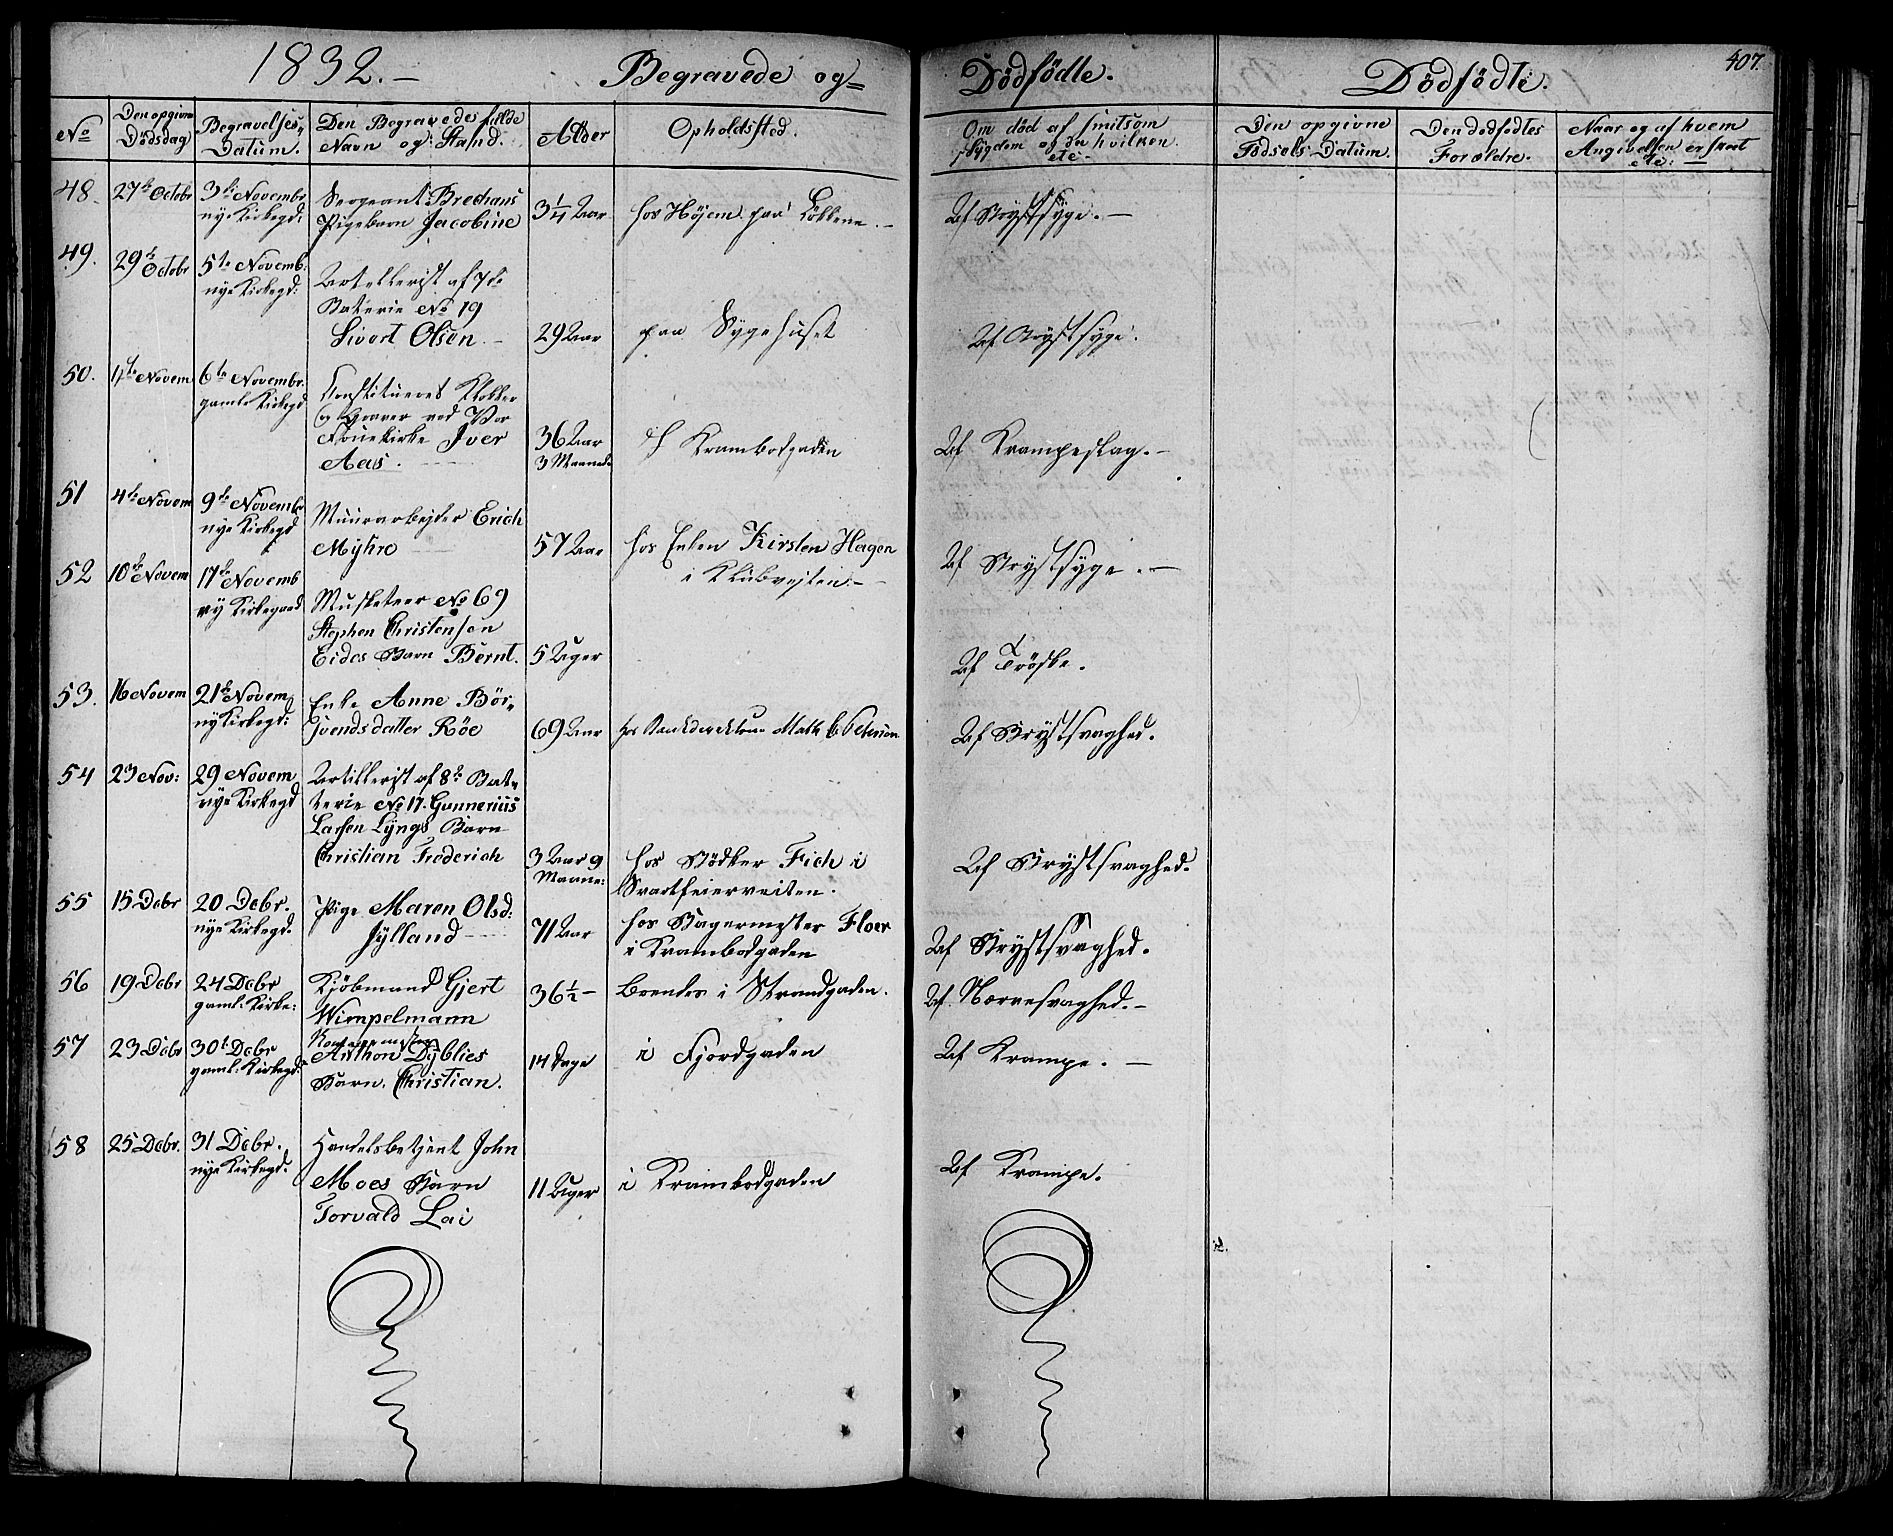 1832.— Begravede og= Dödfödte. Dödfödte. 407.
No
Den opgivne Dödsdag
Begravelses, Datum.
Den Begravedes fulde Navn og Stand.
Alder
Opholdsted.
Om död af smitsom Sygdom og da hvilken. etc.
Den opgivne Födsels Datum.
Den dödfödtes Forældre.
Naar og af hvem Angivelsen er skeet etc:
48. 27de Octobr 3die Novembr Sergeant Brechans
nye Kirkegd: Pigebarn Jacobine 3¼ Aar hos Höjem paa Lökkene.— Af Brystsyge.—
49. 29de Octobr 5te Novemb:
nye Kirkegd: Artellerist af 7de
Baterie No 19
Sivert Olsen.— 29 Aar paa Sygehuset Af Brystsyge.
50. 1ste Novem 6te Novembr.
gamle Kirkegd Konstitueret Klokker
og Graver ved Vor
Frue Kirke Iver 36 Aar i Krambodgaden Af Krampeslag.—
Aas. 3 Maaneder
51 4de Novem 9de Novembr
nye Kirkegd Muurarbejder Erich
Myhre 57 Aar hos Enken Kirsten Hagen
i Klubvejten.— Af Brystsyge.—
52 10de Novem 17de Novemb
ny Kirkegaard Musketeer No 69
Stephen Christensen
Eides Barn Bernt. 5 Uger Af Tröske.
53. 16 Novem 21de Novem
ny Kirkegd: Enke Anne Bör„
jvendsdatter Röe 69 Aar hos Bankdirekteur Math Petersen Af Brystsvaghed.
54 23 Nov: 29 Novem Artillerist af 8de Bat„
nye Kirkegd terie No 17. Gunnerius
Larsen Lyngs Barn
Christian Frederich 3 Aar 9 Maane: hos Bödker Fich i
Svartfeierveiten. Af Brystsvaghed.
55 15 Debr 20 Debr.
nye Kirkegd. Pige Maren Olsd:
Jylland 71 Aar hos Bagermester Floer
i Krambodgaden Af Brystsvaghed.
56 19 Debr 24 Debr Kjöbmand Gjert
gaml: Kirke: Wimpelmann 36½ — Boendes i Strandgaden. Af Nervesvaghed.—
57 23 Debr 30te Debr
gaml: Kirkegd: Anthon Dyblies
Barn. Christian. 14 Dage i Fjordgaden Af Krampe.—
58 25 Debr. 31 Debr.
nye Kirkegd. Handelsbetjent John
Moes Barn
Torvald Lai 11 Uger i Krambodgaden Af Krampe.